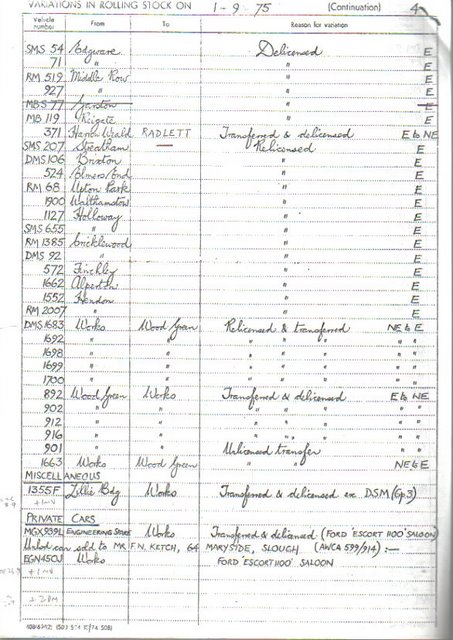 VARIATIONS IN ROLLING STOCK ON 1-9-75 (Continuation) 4
Vehicle number From To Reason for variation
SMS 54 Edgware Delicensed E
71 " " E
RM 519 Middle Row " E
927 " " E
MBS 77 Garston E
MB 119 Reigate " E
371 Harrow Weald RADLETT Transferred & delicensed E to NE
SMS 207 Streatham — Relicensed E
DMS 106 Brixton " E
524 Elmers End " E
RM 68 Upton Park " E
1900 Walthamstow " E
1127 Holloway " E
SMS 655 " " E
RM 1385 Cricklewood " E
DMS 92 " " E
572 Finchley " E
1662 Alperton " E
1552 Hendon " E
RM 2007 " " E
DMS 1683 Works Wood Green Relicensed & transferred NE to E
1692 " " " " " "
1698 " " " " " "
1699 " " " " " "
1700 " " " " " "
892 Wood Green Works Transferred & delicensed E to NE
902 " " " " " "
912 " " " " " "
916 " " " " " "
901 " " Unlicensed transfer
1663 Works Wood Green " " NE to E
MISCELLANEOUS
1355F Lillie Bdg Works Transferred & delicensed ex DSM (Gp 3)
PRIVATE CARS
MGX939L ENGINEERING STORE Works Transferred & delicensed (FORD 'ESCORT 1100' SALOON)
car sold to MR F N. KETCH, 64 MARYSIDE, SLOUGH (AWCA 599/914) :—
EGN450J Works FORD 'ESCORT 1100' SALOON